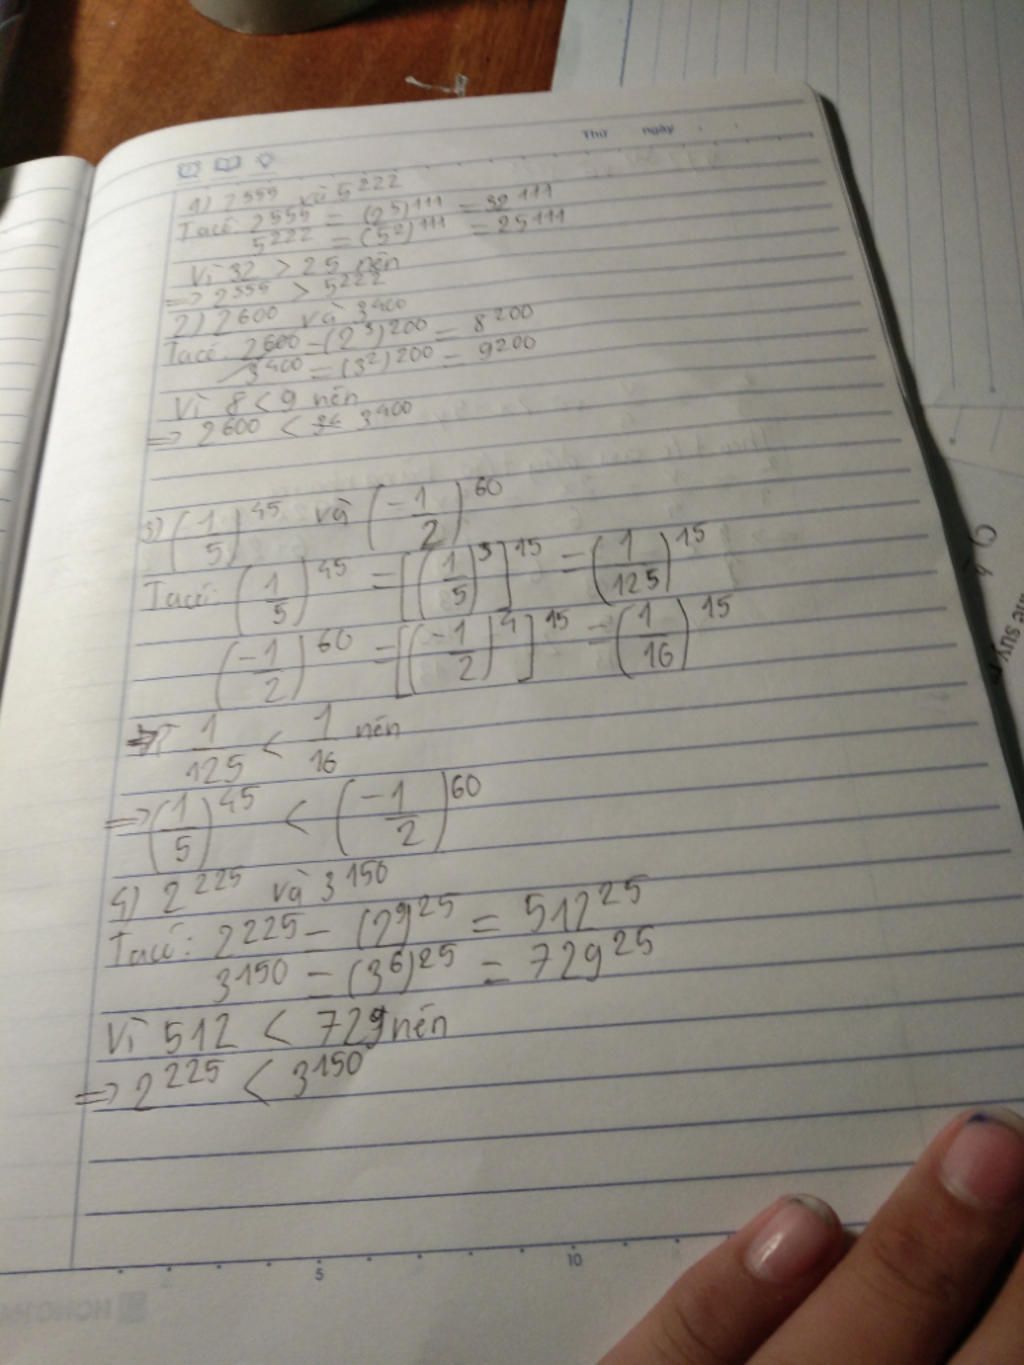 Thứ ngày
1) 2^555 và 5^222
Ta có: 2^555 = (2^5)^111 = 32^111
5^222 = (5^2)^111 = 25^111
Vì 32 > 25 nên
=> 2^555 > 5^222
2) 2^600 và 3^400
Ta có: 2^600 = (2^3)^200 = 8^200
3^400 = (3^2)^200 = 9^200
Vì 8 < 9 nên
=> 2^600 < 3^400
3) (1/5)^45 và (-1/2)^60
Ta có: (1/5)^45 = [(1/5)^3]^15 = (1/125)^15
(-1/2)^60 = [(-1/2)^4]^15 = (1/16)^15
1/125 < 1/16 nên
=> (1/5)^45 < (-1/2)^60
4) 2^225 và 3^150
Ta có: 2^225 = (2^9)^25 = 512^25
3^150 = (3^6)^25 = 729^25
Vì 512 < 729 nên
=> 2^225 < 3^150
5 10